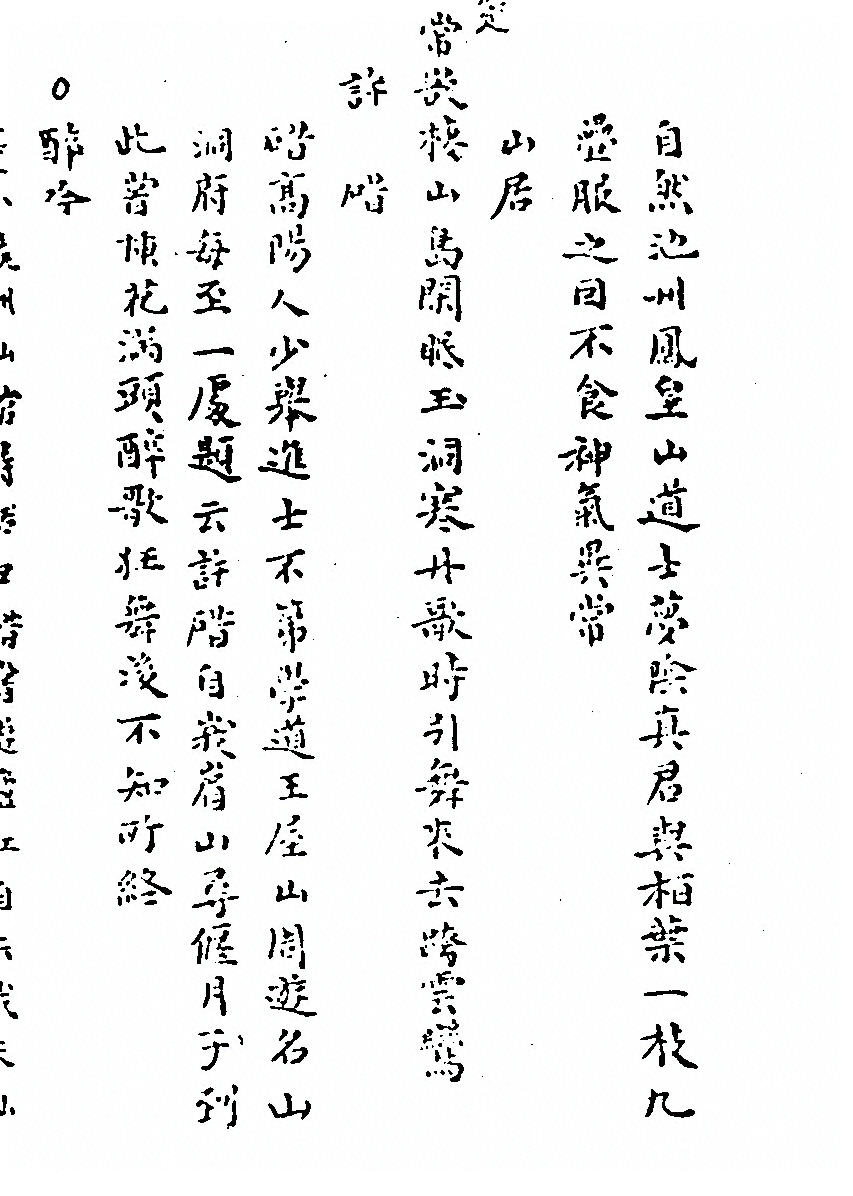 自然池州鳳皇山道士夢陰真君與柏葉一枝九
壺服之因不食神氣異常
山居
常欲棲山島閑眠玉洞寒丹歌時引舞來去跨雲鸞
許碏
碏高陽人少舉進士不第學道王屋山周遊名山
洞府每至一處題云許碏自峩眉山尋偃月子到
此嘗揷花滿頭醉歌狂舞後不知所終
○醉吟